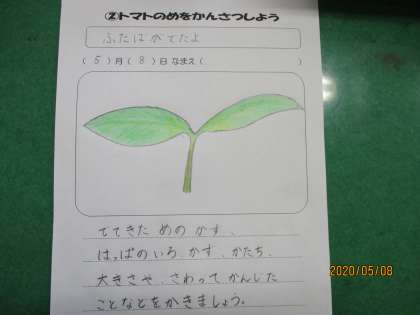 ②トマトのめをかんさつしよう
ふたばがでたよ
(5)月(8)日 なまえ( )
でてきた めの かず、
はっぱのいろ、かず、かたち、
大きさや、さわって かんじた
ことなどをかきましょう。
2020/05/08